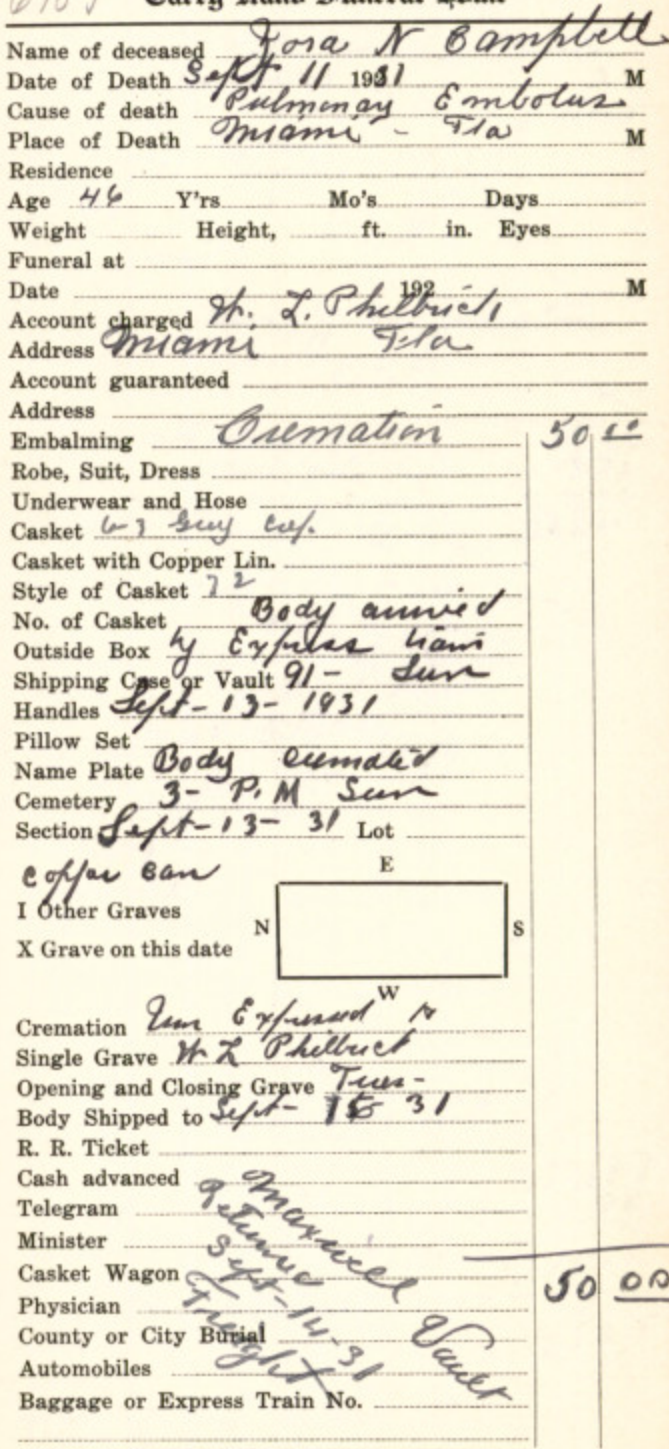 Name of deceased Dora N Campbell
Date of Death Sept 11 1931 M
Cause of death Pulmonay Embolus
Place of Death Miami - Fla M
Residence
Age 46 Y'rs Mo's Days
Weight Height, ft. in. Eyes
Funeral at
Date 192 M
Account charged W. L. Philbrick
Address Miami Fla
Account guaranteed
Address
Embalming Cremation 50 00
Robe, Suit, Dress
Underwear and Hose
Casket 6-3
Casket with Copper Lin.
Style of Casket
No. of Casket Body arrived
Outside Box by Express train
Shipping Case or Vault 91 - Sun
Handles Sept - 13 - 1931
Pillow Set
Name Plate Body cremated
Cemetery 3 - P.M Sun
Section Sept - 13 - 31 Lot
Copper Can
E
I Other Graves
N S
X Grave on this date
W
Cremation Urn Expressed to
Single Grave W L Philbrick
Opening and Closing Grave Tues -
Body Shipped to Sept - 15 31
R. R. Ticket
Cash advanced
Telegram
Minister
Casket Wagon 50 00
Physician
County or City Burial
Automobiles
Baggage or Express Train No.
Maxwell Vault
Returned
Sept - 14 - 31
Freight